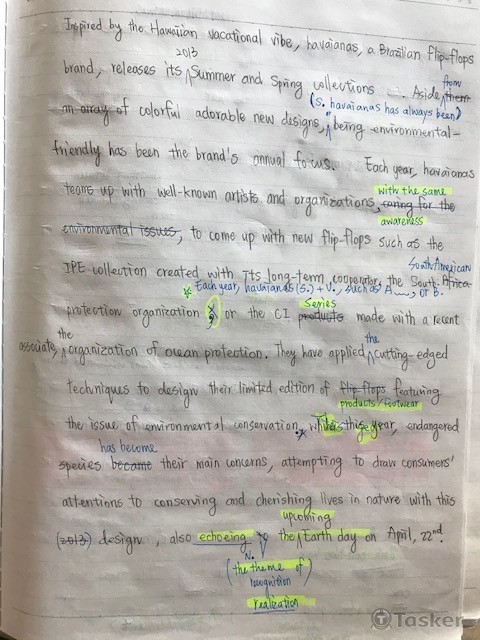 Inspired by the Hawaiian vacational vibe, havaianas, a Brazilian flip-flops
2013
brand, releases its ^ Summer and Spring collections .... Aside them
from
(S. havaianas has always been)
an array of colorful adorable new designs, ^ being environmental-
friendly has been the brand's annual focus. Each year, havaianas
teams up with well-known artists and organizations, caring for the
with the same
awareness
environmental issues, to come up with new flip-flops such as the
South American
IPE collection created with its long-term cooperator, the South Africa
* Each year, havaianas (S.) + V., such as A, or B.
protection organization ; or the CI products made with a recent
series
the the
associate, ^ organization of ocean protection. They have applied ^ cutting-edged
techniques to design their limited edition of flip-flops featuring
products/footwear
the issue of environmental conservation. this year, endangered
has become
species became their main concerns, attempting to draw consumers'
attentions to conserving and cherishing lives in nature with this
upcoming
(2013) design, also echoing to the ^ Earth day on April, 22nd.
N.
(the theme of)
recognition
realization
Tasker